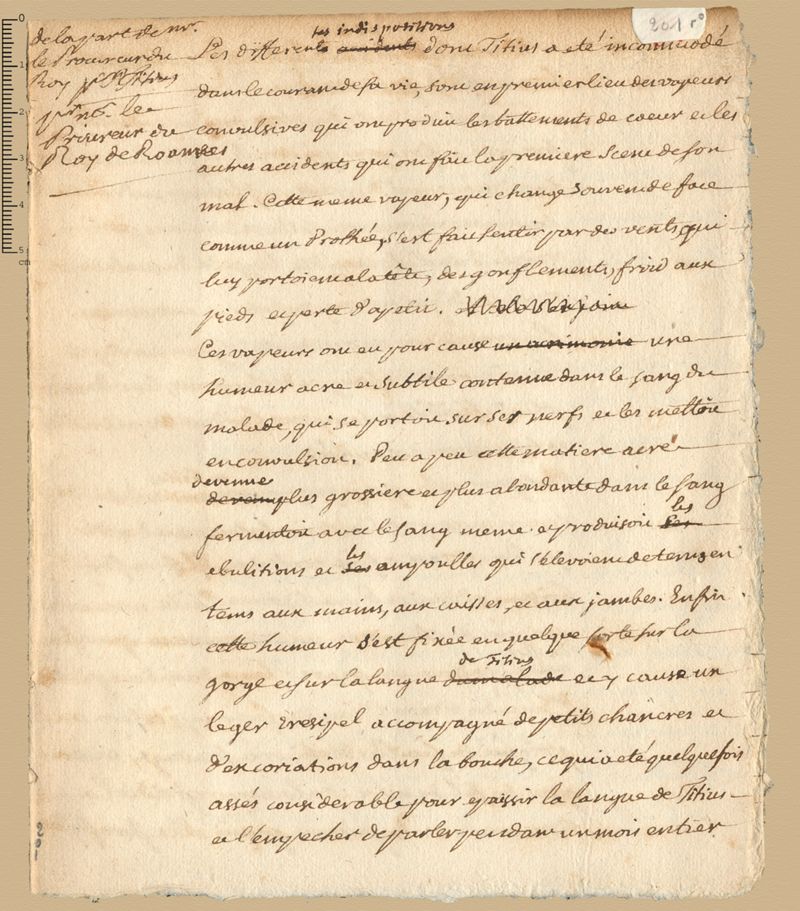 201 r°
de la part de mr.
le Procureur du
Roy pr Titius
le
Procureur du
Roy de Roannes
les indispositions
Les differents accidents dont Titius a eté incommodé
dans le courant de sa vie, sont en premier lieu des vapeurs
convulsives qui ont produit les battements de coeur et les
autres accidents qui ont fait la premiere Scene de son
mal. Cette meme vapeur, qui change souvent de face
comme un Prothée, s'est fait sentir par des vents, qui
luy portoient a la tête, des gonflements, froid aux
pieds et perte d'apetit.
Ces vapeurs ont eu pour cause une acrimonie une
humeur acre et subtile contenue dans le sang du
malade, qui se portoit sur ses nerfs et les mettoit
en convulsion. Peu a peu cette matiere acre
devenue
plus grossiere et plus abondante dans le sang
les
fermentoit avec le sang meme et produisoit ses
les
ebulitions et ses ampoulles qui s'elevoient de tems en
tems aux mains, aux cuisses, et aux jambes. Enfin
cette humeur s'est fixée en quelque sorte sur la
de Titius
gorge et sur la langue du malade et y cause un
leger Eresipel accompagné de petits chancres et
d'excoriations dans la bouche, ce qui a eté quelquefois
assés considerable pour epaissir la langue de Titius
et l'empecher de parler pendant un mois entier
0
1
2
3
4
5
cm
201